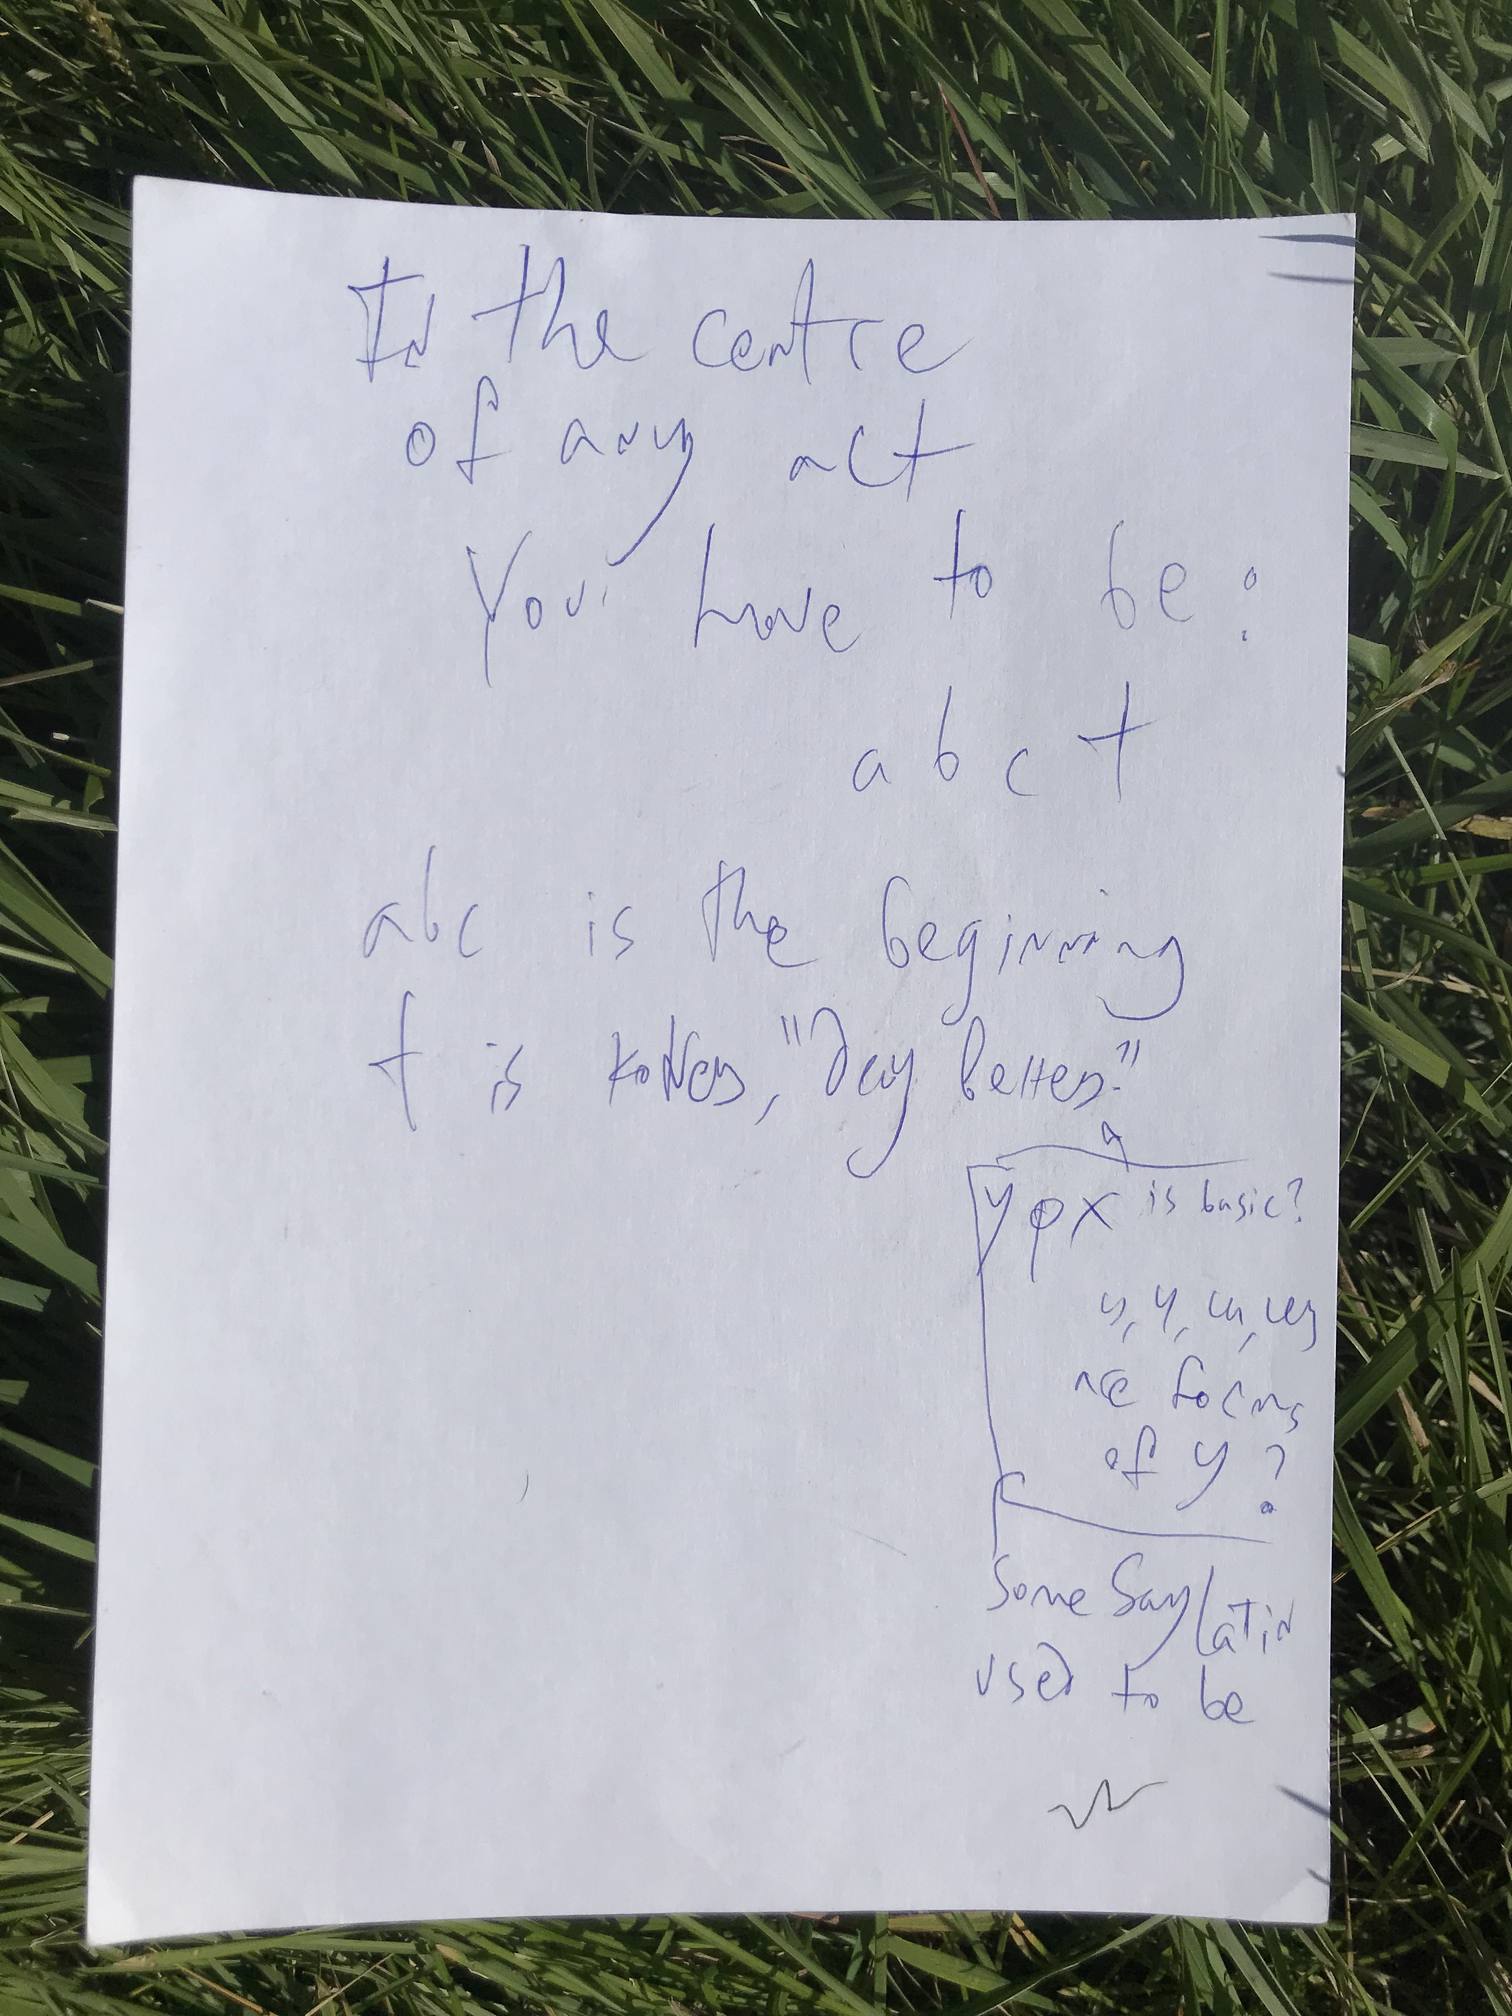 In the centre
of any act
You have to be:
a b c t
abc is the beginning
t is "Day better."
y φ x is basic?
of y?
Some say Latin
used to be